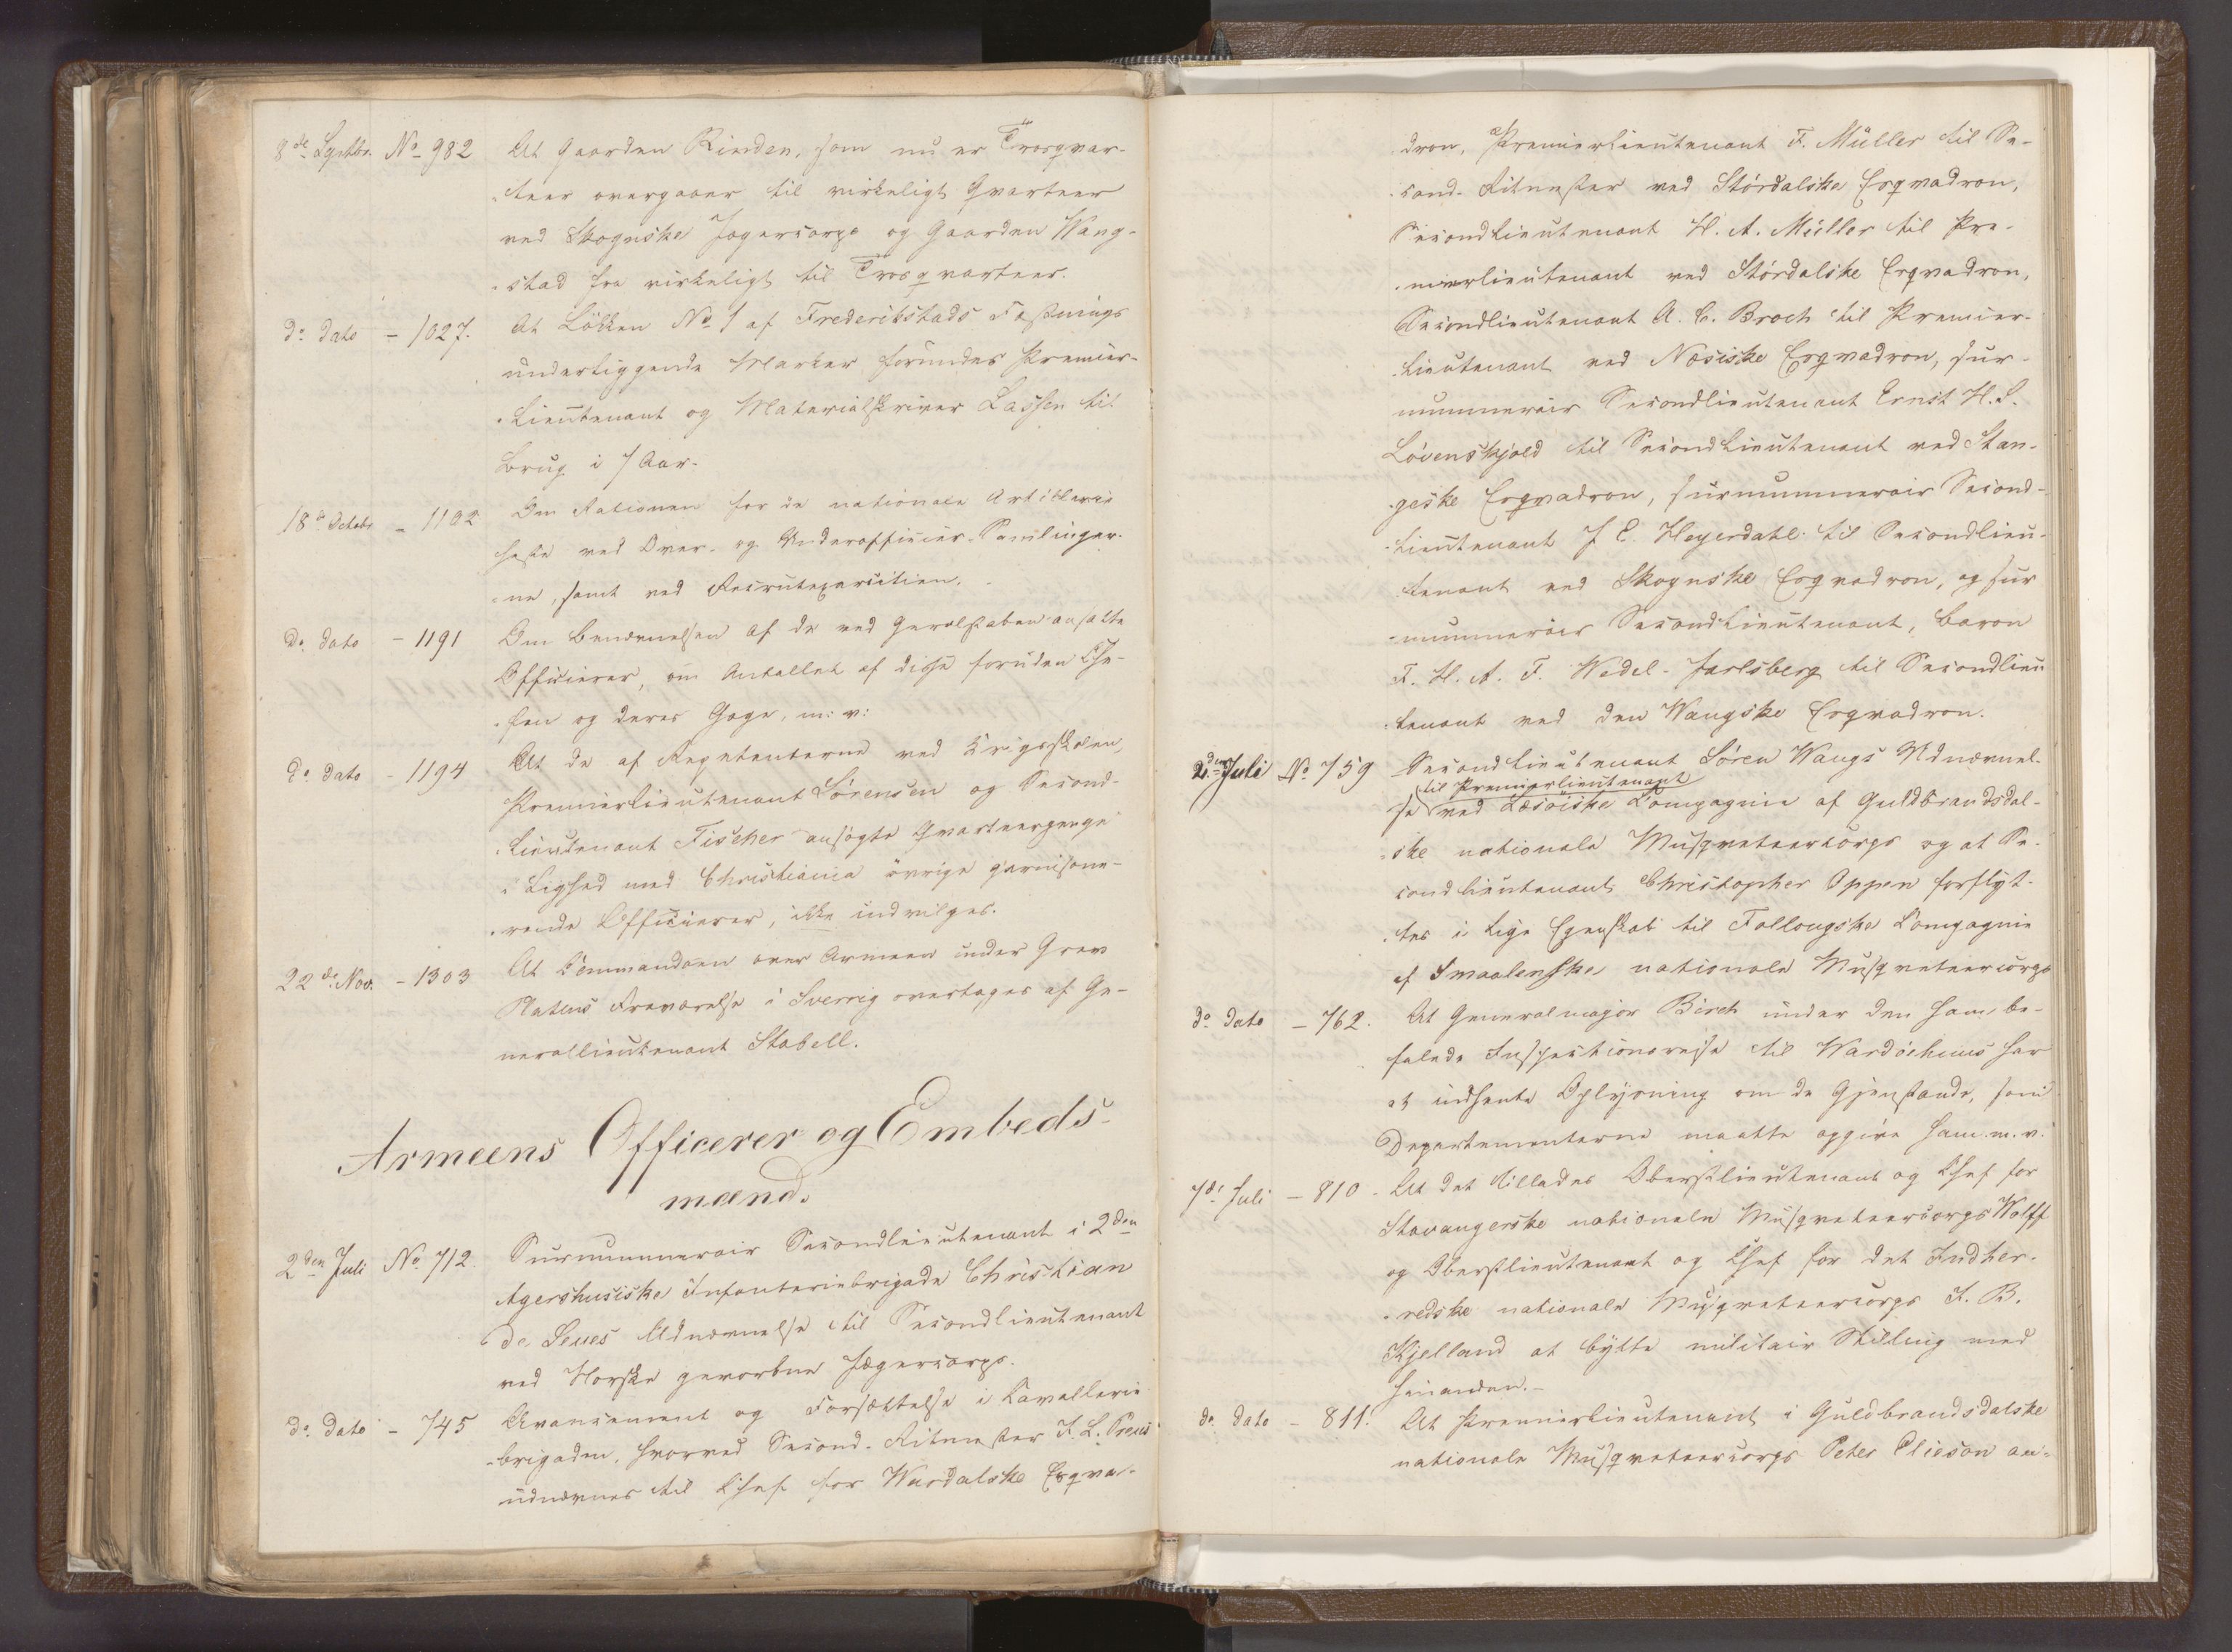 8de Septbr. No 982 At Gaarden Rinden, som nu er Trosqvar-
teer overgaaer til virkeligt Qvarteer
ved Skognske Jægercorps og Gaarden Wang-
stad fra virkeligt til Trosqvarteer.
do dato - 1027. At Lökken No 1 af Frederikstads Fæstnings
underliggende Marker forundes Premier-
Lieutenant og Materialskriver Lassen til
Brug i 1 Aar.
18de Octobr. - 1102 Om Rationen for de nationale Artillerie
heste ved Over- og Underofficier-Samlinger-
ne, samt ved Recrutexercitien.
do dato - 1191 Om Benævnelsen af de ved Generalstaben ansatte
Officierer, om Antallet af disse foruden Che-
fen og deres Gage, m: v:
do dato - 1194 At de af Repetenterne ved Krigsskolen,
Premierlieutenant Sörensen og Second-
Lieutenant Fischer ansøgte Qvarteerpenge
i Lighed med Christiania övrige garnisone-
rende Officierer, ikke indvilges.
22de Nov. - 1303 At Commandoen over Armeen under Grev
Platens Fraværelse i Sverrig overtages af Ge-
nerallieutenant Stabell.
Armeens Officerer og Embeds-
mænd.
2den Juli No 712. Surnummerair Secondlieutenant i 2den
Agershusiske Infanteriebrigade Christian
de Seues Udnævnelse til Secondlieutenant
ved Norske gevorbne Jægercorps.
do dato - 745 Avancement og Forsættelse i Cavallerie
brigaden, hvorved Second-Ritmester F. L. Preus
udnævnes til Chef for Wærdalske Esqva-
dron, Premierlieutenant F. Müller til Se-
cond-Ritmester ved Stördalske Esqvadron,
Secondlieutenant H. A. Müller til Pre-
mierlieutenant ved Stördalske Esqvadron,
Secondlieutenant A. C. Broch til Premier-
lieutenant ved Næsiske Esqvadron, sur-
nummerair Secondlieutenant Ernst H. S.
Lövenskjold til Secondlieutenant ved Stan-
geske Esqvadron, surnummerair Second-
Lieutenant J E. Heyerdahl til Secondlieu-
tenant ved Skognske Esqvadron, og sur
nummerair Secondlieutenant, Baron
F. H. A. F. Wedel-Jarlsberg til Secondlieu
tenant ved den Wangske Esqvadron.
2den Juli No 759 Secondlieutenant Sören Wangs Udnævnel-
til Premierlieutenant
se ved Læsöiske Compagnie af Guldbrandsdal-
ske nationale Musqveteercorps og at Se-
condlieutenant Christopher Oppen forflyt-
tes i lige Egenskab til Follougske Compagnie
af Smaalenske nationale Musqveteercorps
do dato - 762. At Generalmajor Birch under den ham be-
falede Inspectionsreise til Wardöehuus har
at indhente Oplysning om de Gjenstande, som
Departementerne maatte opgive ham. m. v.
7de Juli - 810. At det tillades Oberstlieutenant og Chef for
Stavangerske nationale Musqveteercorps Wolff
og Oberstlieutenant og Chef for det Indher-
redske nationale Musqveteercorps J. B.
Kjelland at bytte militair Stilling med
hinanden.
do dato - 811. At Premierlieutenant i Guldbrandsdalske
nationale Musqveteercorps Peter Elieson an-